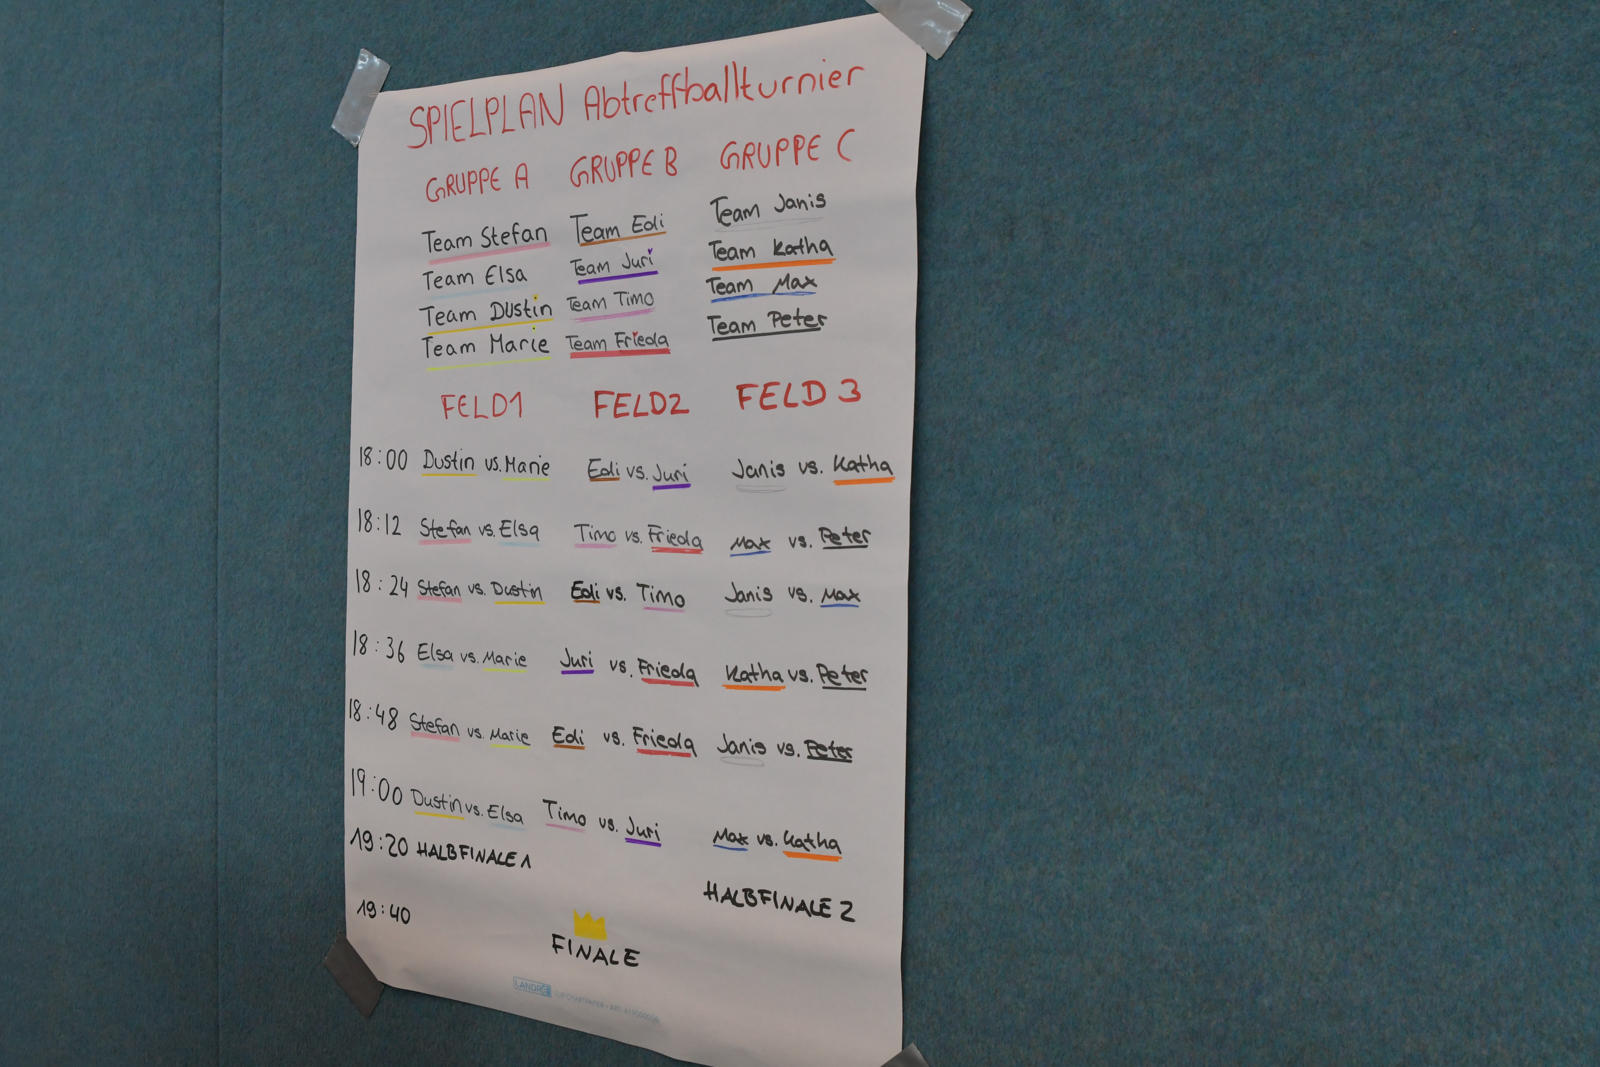 SPIELPLAN Abtreffballturnier
GRUPPE A GRUPPE B GRUPPE C
Team Stefan Team Edi Team Janis
Team Elsa Team Juri Team Katha
Team Dustin Team Timo Team Max
Team Marie Team Frieda Team Peter
FELD1 FELD2 FELD 3
18:00 Dustin vs. Marie Edi vs. Juri Janis vs. Katha
18:12 Stefan vs. Elsa Timo vs. Frieda Max vs. Peter
18:24 Stefan vs. Dustin Edi vs. Timo Janis vs. Max
18:36 Elsa vs. Marie Juri vs. Frieda Katha vs. Peter
18:48 Stefan vs. Marie Edi vs. Frieda Janis vs. Peter
19:00 Dustin vs. Elsa Timo vs. Juri Max vs. Katha
19:20 HALBFINALE 1 HALBFINALE 2
19:40 FINALE
LANDRÉ